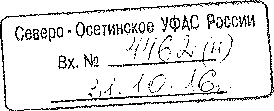 Северо-Осетинское УФАС России
Вх. № 4462 (н)
21.10.16.